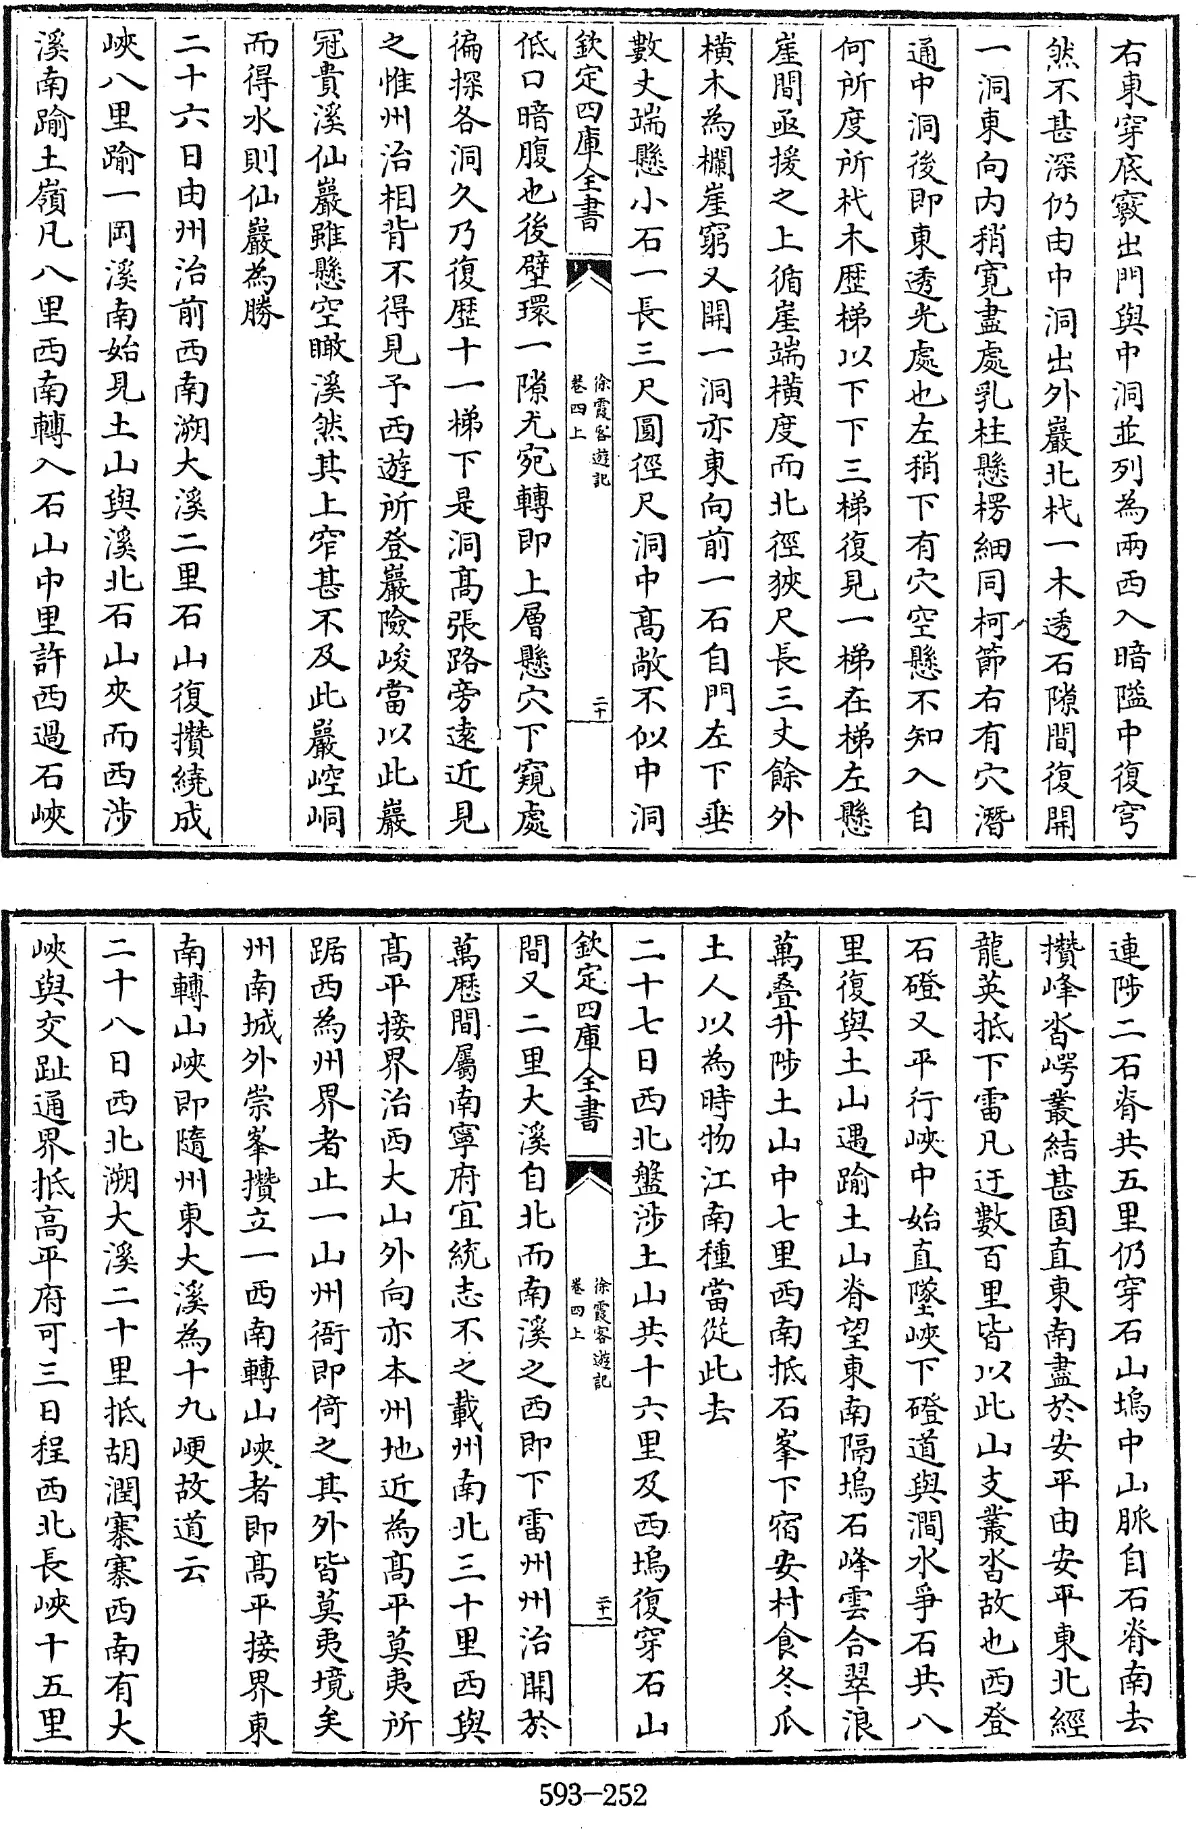 右東穿底竅出門與中洞並列為兩西入暗隘中復穹
然不甚深仍由中洞出外巖北杙一木透石隙間復開
一洞東向内稍寛盡處乳柱懸楞細同柯節右有穴潛
通中洞後即東透光處也左稍下有穴空懸不知入自
何所度所杙木歴梯以下下三梯復見一梯在梯左懸
崖間亟援之上循崖端横度而北徑狹尺長三丈餘外
横木為欄崖窮又開一洞亦東向前一石自門左下垂
數丈端懸小石一長三尺圓徑尺洞中髙敞不似中洞
欽定四庫全書
徐霞客遊記
卷四上
二十
低口暗腹也後壁環一隙尤宛轉即上層懸穴下窺處
徧探各洞久乃復歴十一梯下是洞髙張路旁逺近見
之惟州治相背不得見予西遊所登巖險峻當以此巖
冠貴溪仙巖雖懸空瞰溪然其上窄甚不及此巖崆峒
而得水則仙巖為勝
二十六日由州治前西南溯大溪二里石山復攢繞成
峽八里踰一岡溪南始見土山與溪北石山夾而西涉
溪南踰土嶺凡八里西南轉入石山中里許西過石峽
連陟二石脊共五里仍穿石山塢中山脈自石脊南去
攢峰沓崿叢結甚固直東南盡於安平由安平東北經
龍英抵下雷凡迂數百里皆以此山支叢沓故也西登
石磴又平行峽中始直墜峽下磴道與澗水爭石共八
里復與土山遇踰土山脊望東南隔塢石峰雲合翠浪
萬叠升陟土山中七里西南抵石峯下宿安村食冬瓜
土人以為時物江南種當從此去
二十七日西北盤涉土山共十六里及西塢復穿石山
欽定四庫全書
徐霞客遊記
卷四上
二十一
間又二里大溪自北而南溪之西即下雷州州治開於
萬歴間屬南寧府宜統志不之載州南北三十里西與
髙平接界治西大山外向亦本州地近為髙平莫夷所
踞西為州界者止一山州衙即倚之其外皆莫夷境矣
州南城外崇峯攢立一西南轉山峽者即髙平接界東
南轉山峽即隨州東大溪為十九峺故道云
二十八日西北溯大溪二十里抵胡潤寨寨西南有大
峽與交趾通界抵高平府可三日程西北長峽十五里
593-252